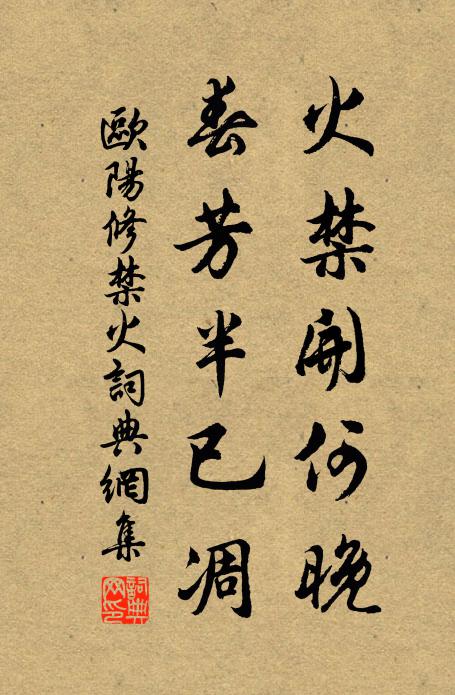 火禁開何晚
春芳半已凋
歐陽修禁火詞典網集
詞典網印